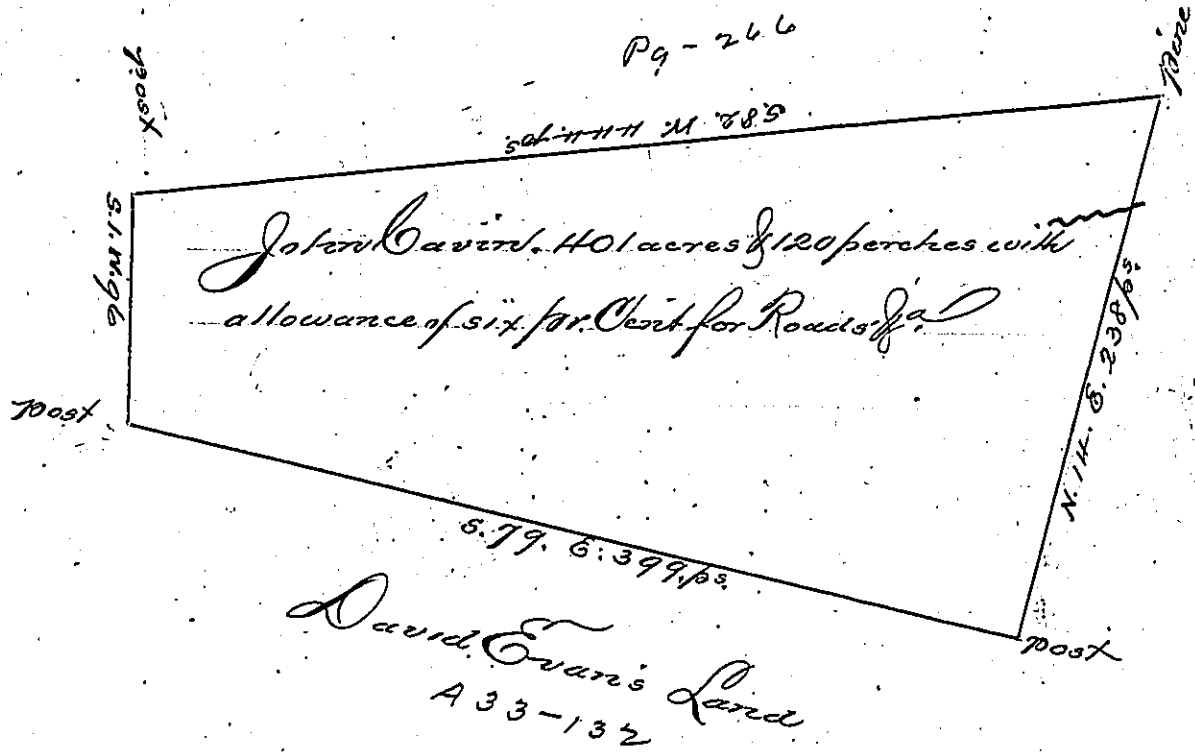 Pg - 266
Pine
post
S. 82. W. 444. ps.
S. 1. W. 96
John Cavin. 401 acres & 120 perches with
allowance of six pr. Cent for Roads &a.
N. 14. E. 238 ps.
post
S. 79. E: 399. ps.
post
David Evan's Land
A 33-132